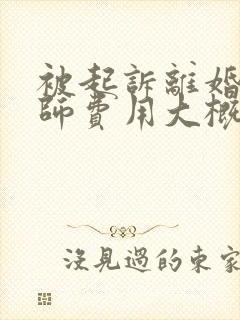 被起訴離婚
師費用大概
沒見過的東家